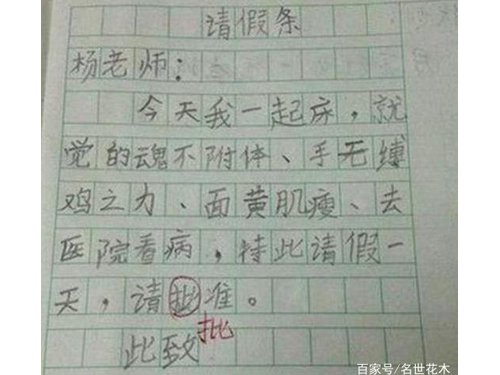 请假条
杨老师：
今天我一起床，就
觉的魂不附体、手无缚
鸡之力、面黄肌瘦、去
医院看病，特此请假一
天，请批准。
批
此致
百家号/名世花木